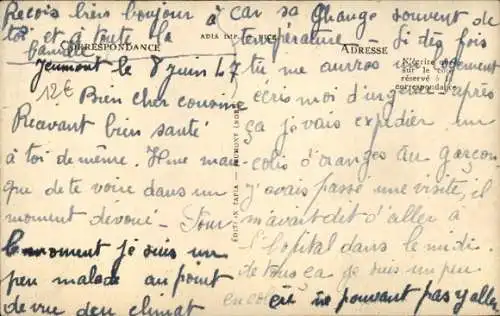 Reçois bien bonjour à
toi et à toute la
famille
CORRESPONDANCE
Jeumont le 8 juin 47
12€
Bien cher cousine
Recevant bien santé
à toi de même. Il me man-
que de te voire dans un
moment dévoué - Pour
le moment je suis un
peu malade au point
de vue du climat
EDITION TAPIA - JEUMONT (NORD)
car sa change souvent de
température - Si dès fois
ADRESSE
N'écrire
sur le côté
réservé à la
correspondance
tu me auros logement
écris moi d'urgence - après
ça je vais expédier un
colis d'oranges au garçon
j'avais passé une visite, il
m'avait dit d'aller a
l'hopital dans le midi
de tous ça je suis un peu
en colère ne pouvant pas y aller